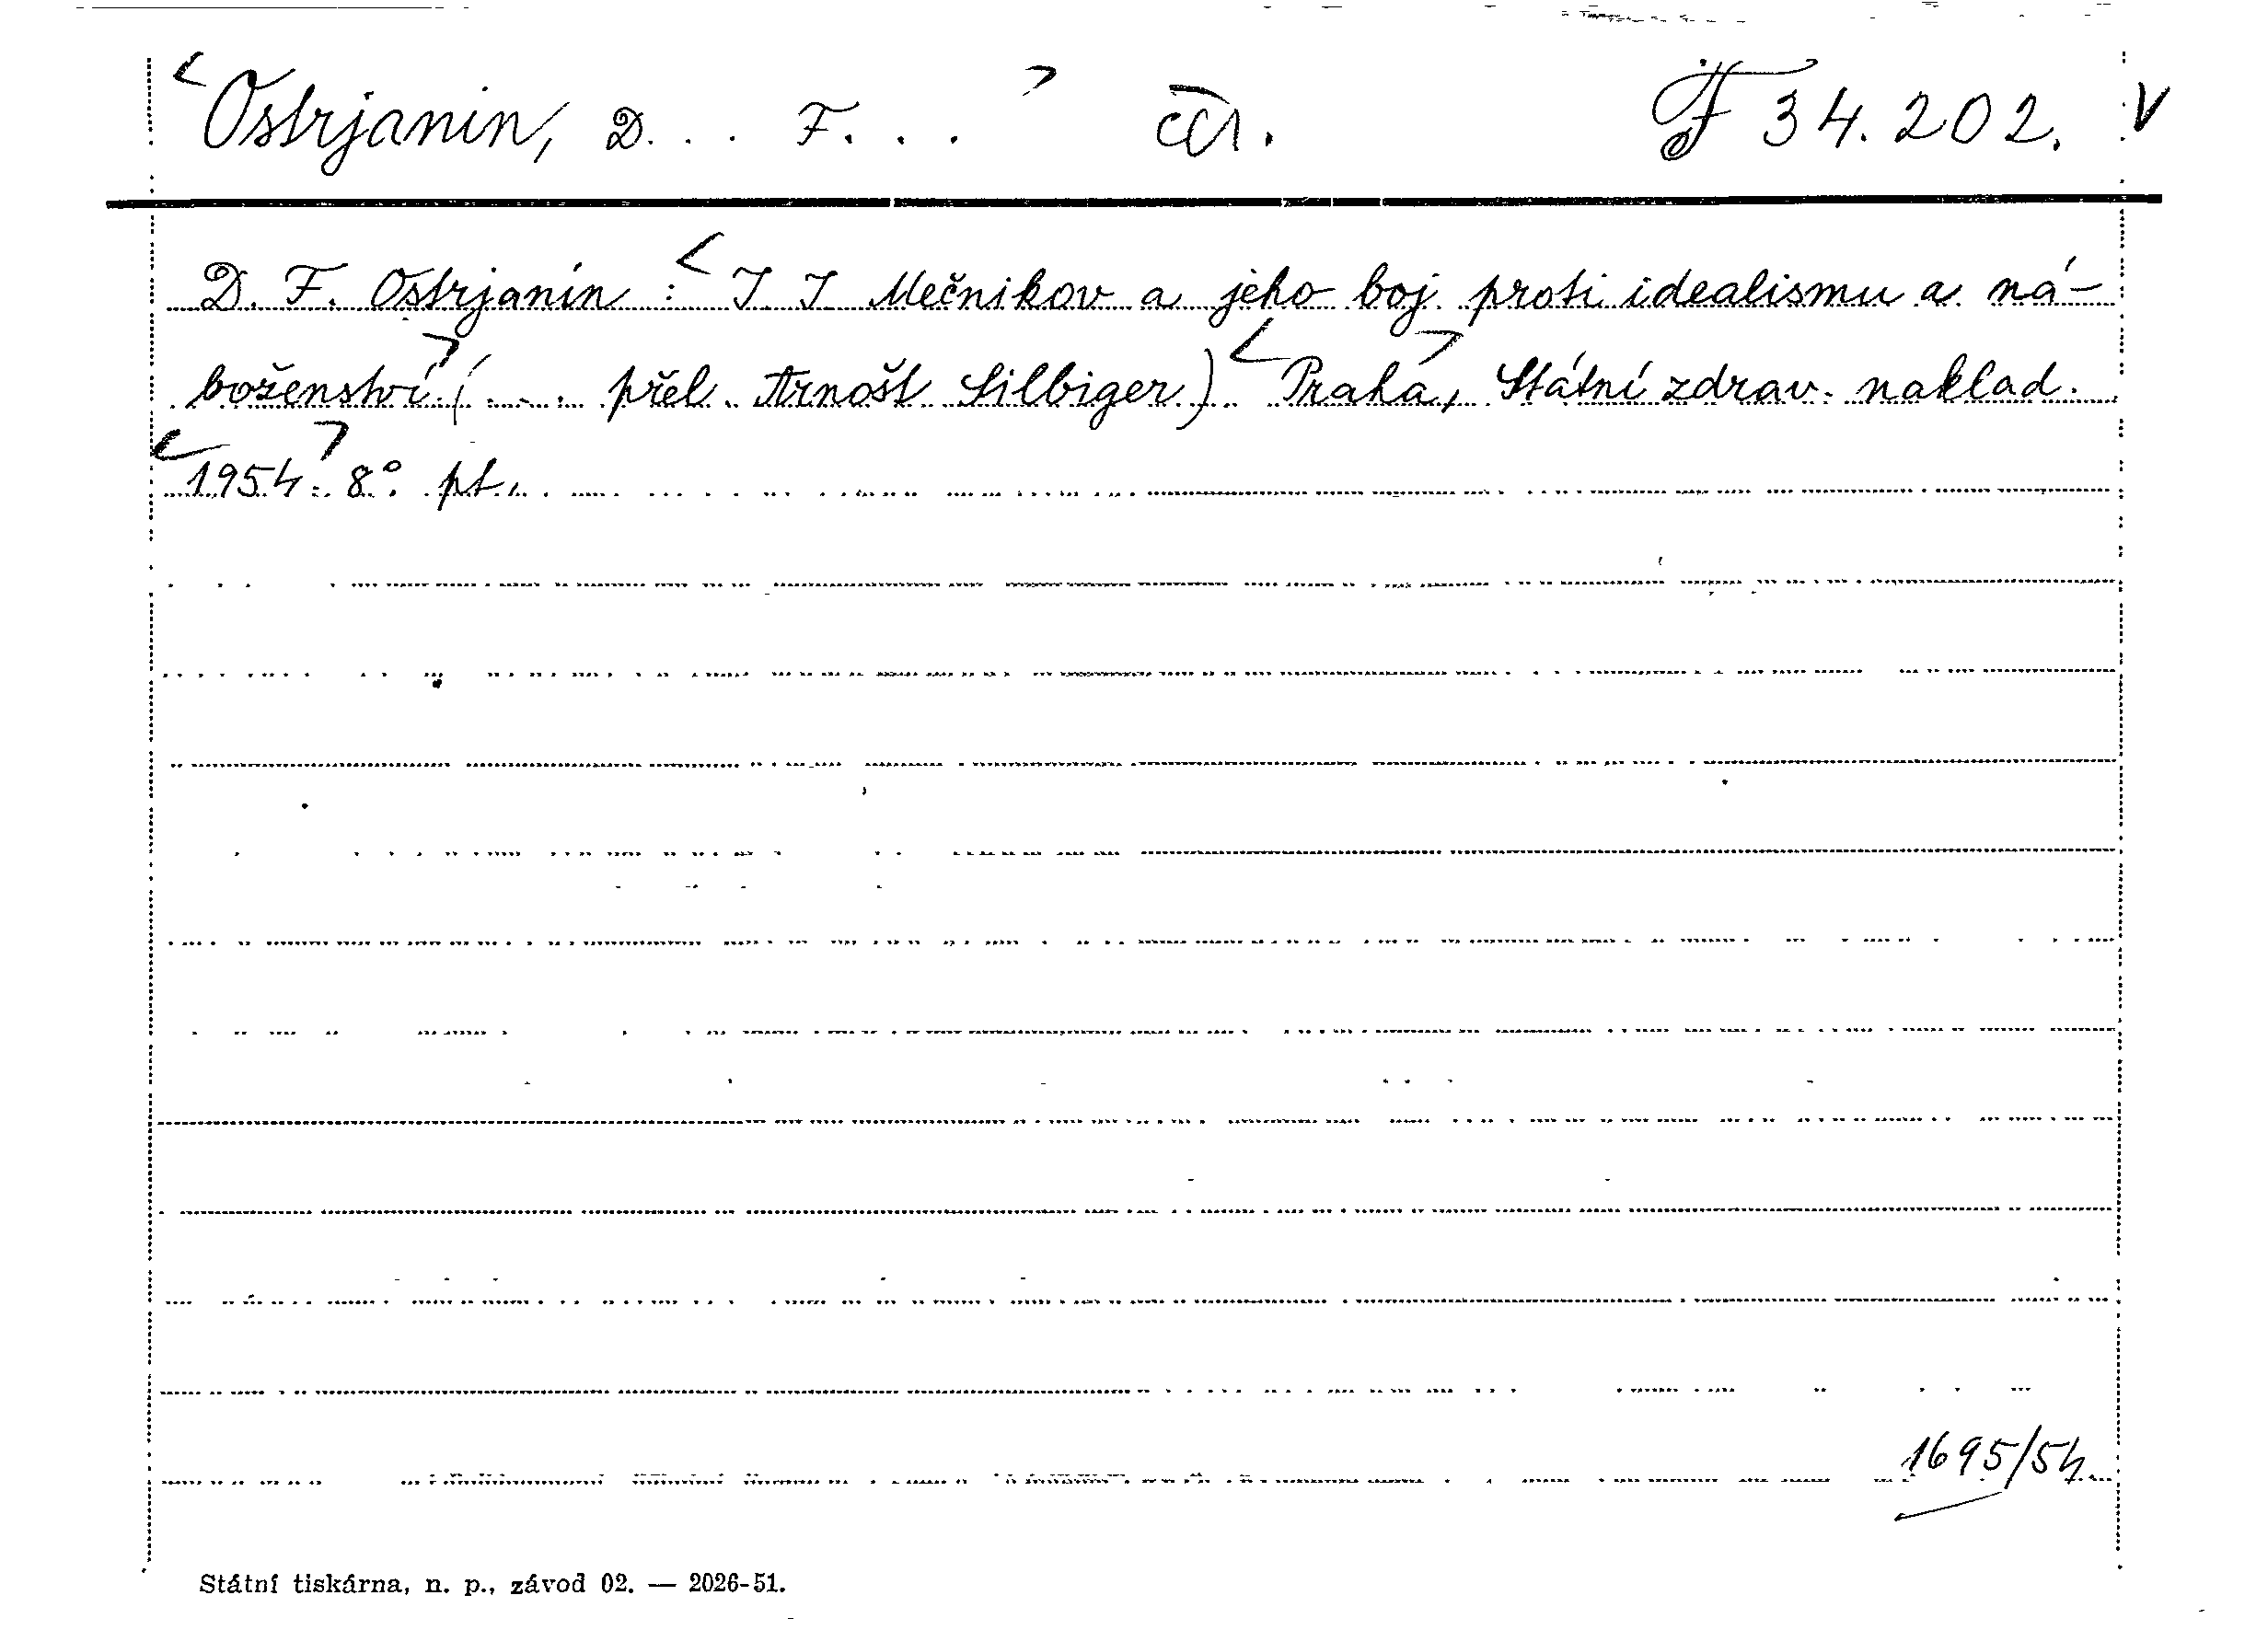 <Ostrjanin, D... F...> čа. F 34.202. V
D. F. Ostrjanin: <I I Mečnikov a jeho boj proti idealismu a ná-
boženství> (... přel. Arnošt Silbiger) <Praha>, Státní zdrav. naklad.
<1954.> 8° pt.
1695/54.
Státní tiskárna, n. p., závod 02. — 2026-51.